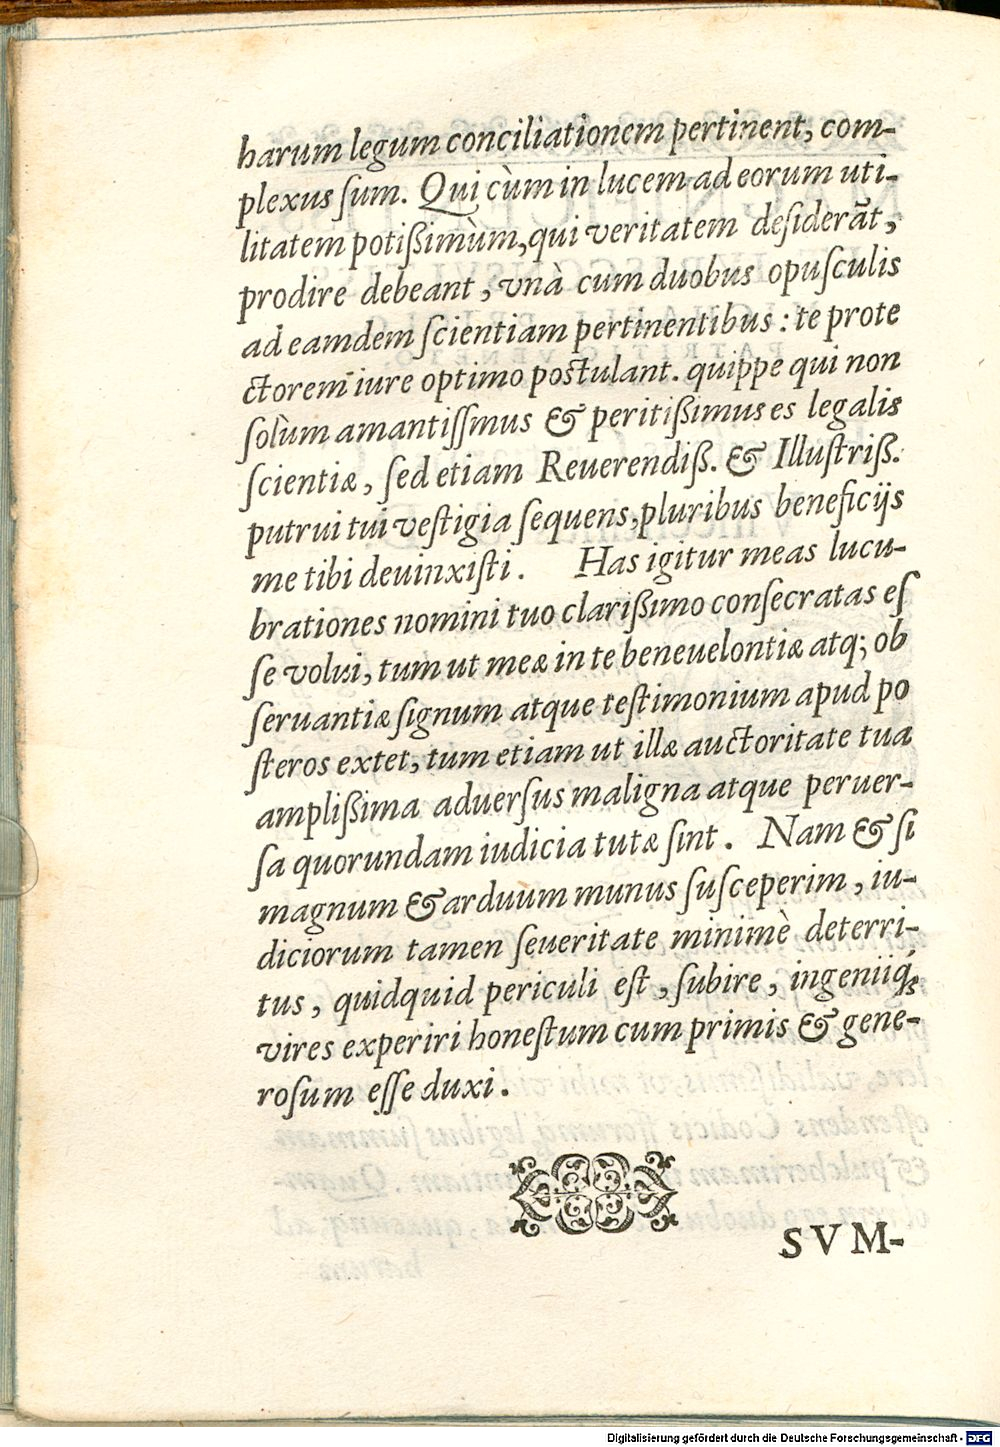 harum legum conciliationem pertinent, com-
plexus ſum. Qui cùm in lucem ad eorum uti-
litatem potißimùm, qui veritatem deſiderāt,
prodire debeant, vnà cum duobus opuſculis
ad eamdem ſcientiam pertinentibus: te prote
ctorem iure optimo poſtulant. quippe qui non
ſolùm amantiſſmus & peritißimus es legalis
ſcientiæ, ſed etiam Reuerendiß. & Illuſtriß.
putrui tui veſtigia ſequens, pluribus beneficijs
me tibi deuinxiſti. Has igitur meas lucu-
brationes nomini tuo clarißimo conſecratas eſ
ſe volui, tum ut meæ in te beneuelontiæ atq; ob
ſeruantiæ ſignum atque teſtimonium apud po
ſteros extet, tum etiam ut illæ auctoritate tua
amplißima aduerſus maligna atque peruer-
ſa quorundam iudicia tutæ ſint. Nam & ſi
magnum & arduum munus ſuſceperim, iu-
diciorum tamen ſeueritate minimè deterri-
tus, quidquid periculi eſt, ſubire, ingeniiq́;
vires experiri honeſtum cum primis & gene-
roſum eſſe duxi.
SVM-
Digitalisierung gefördert durch die Deutsche Forschungsgemeinschaft - DFG